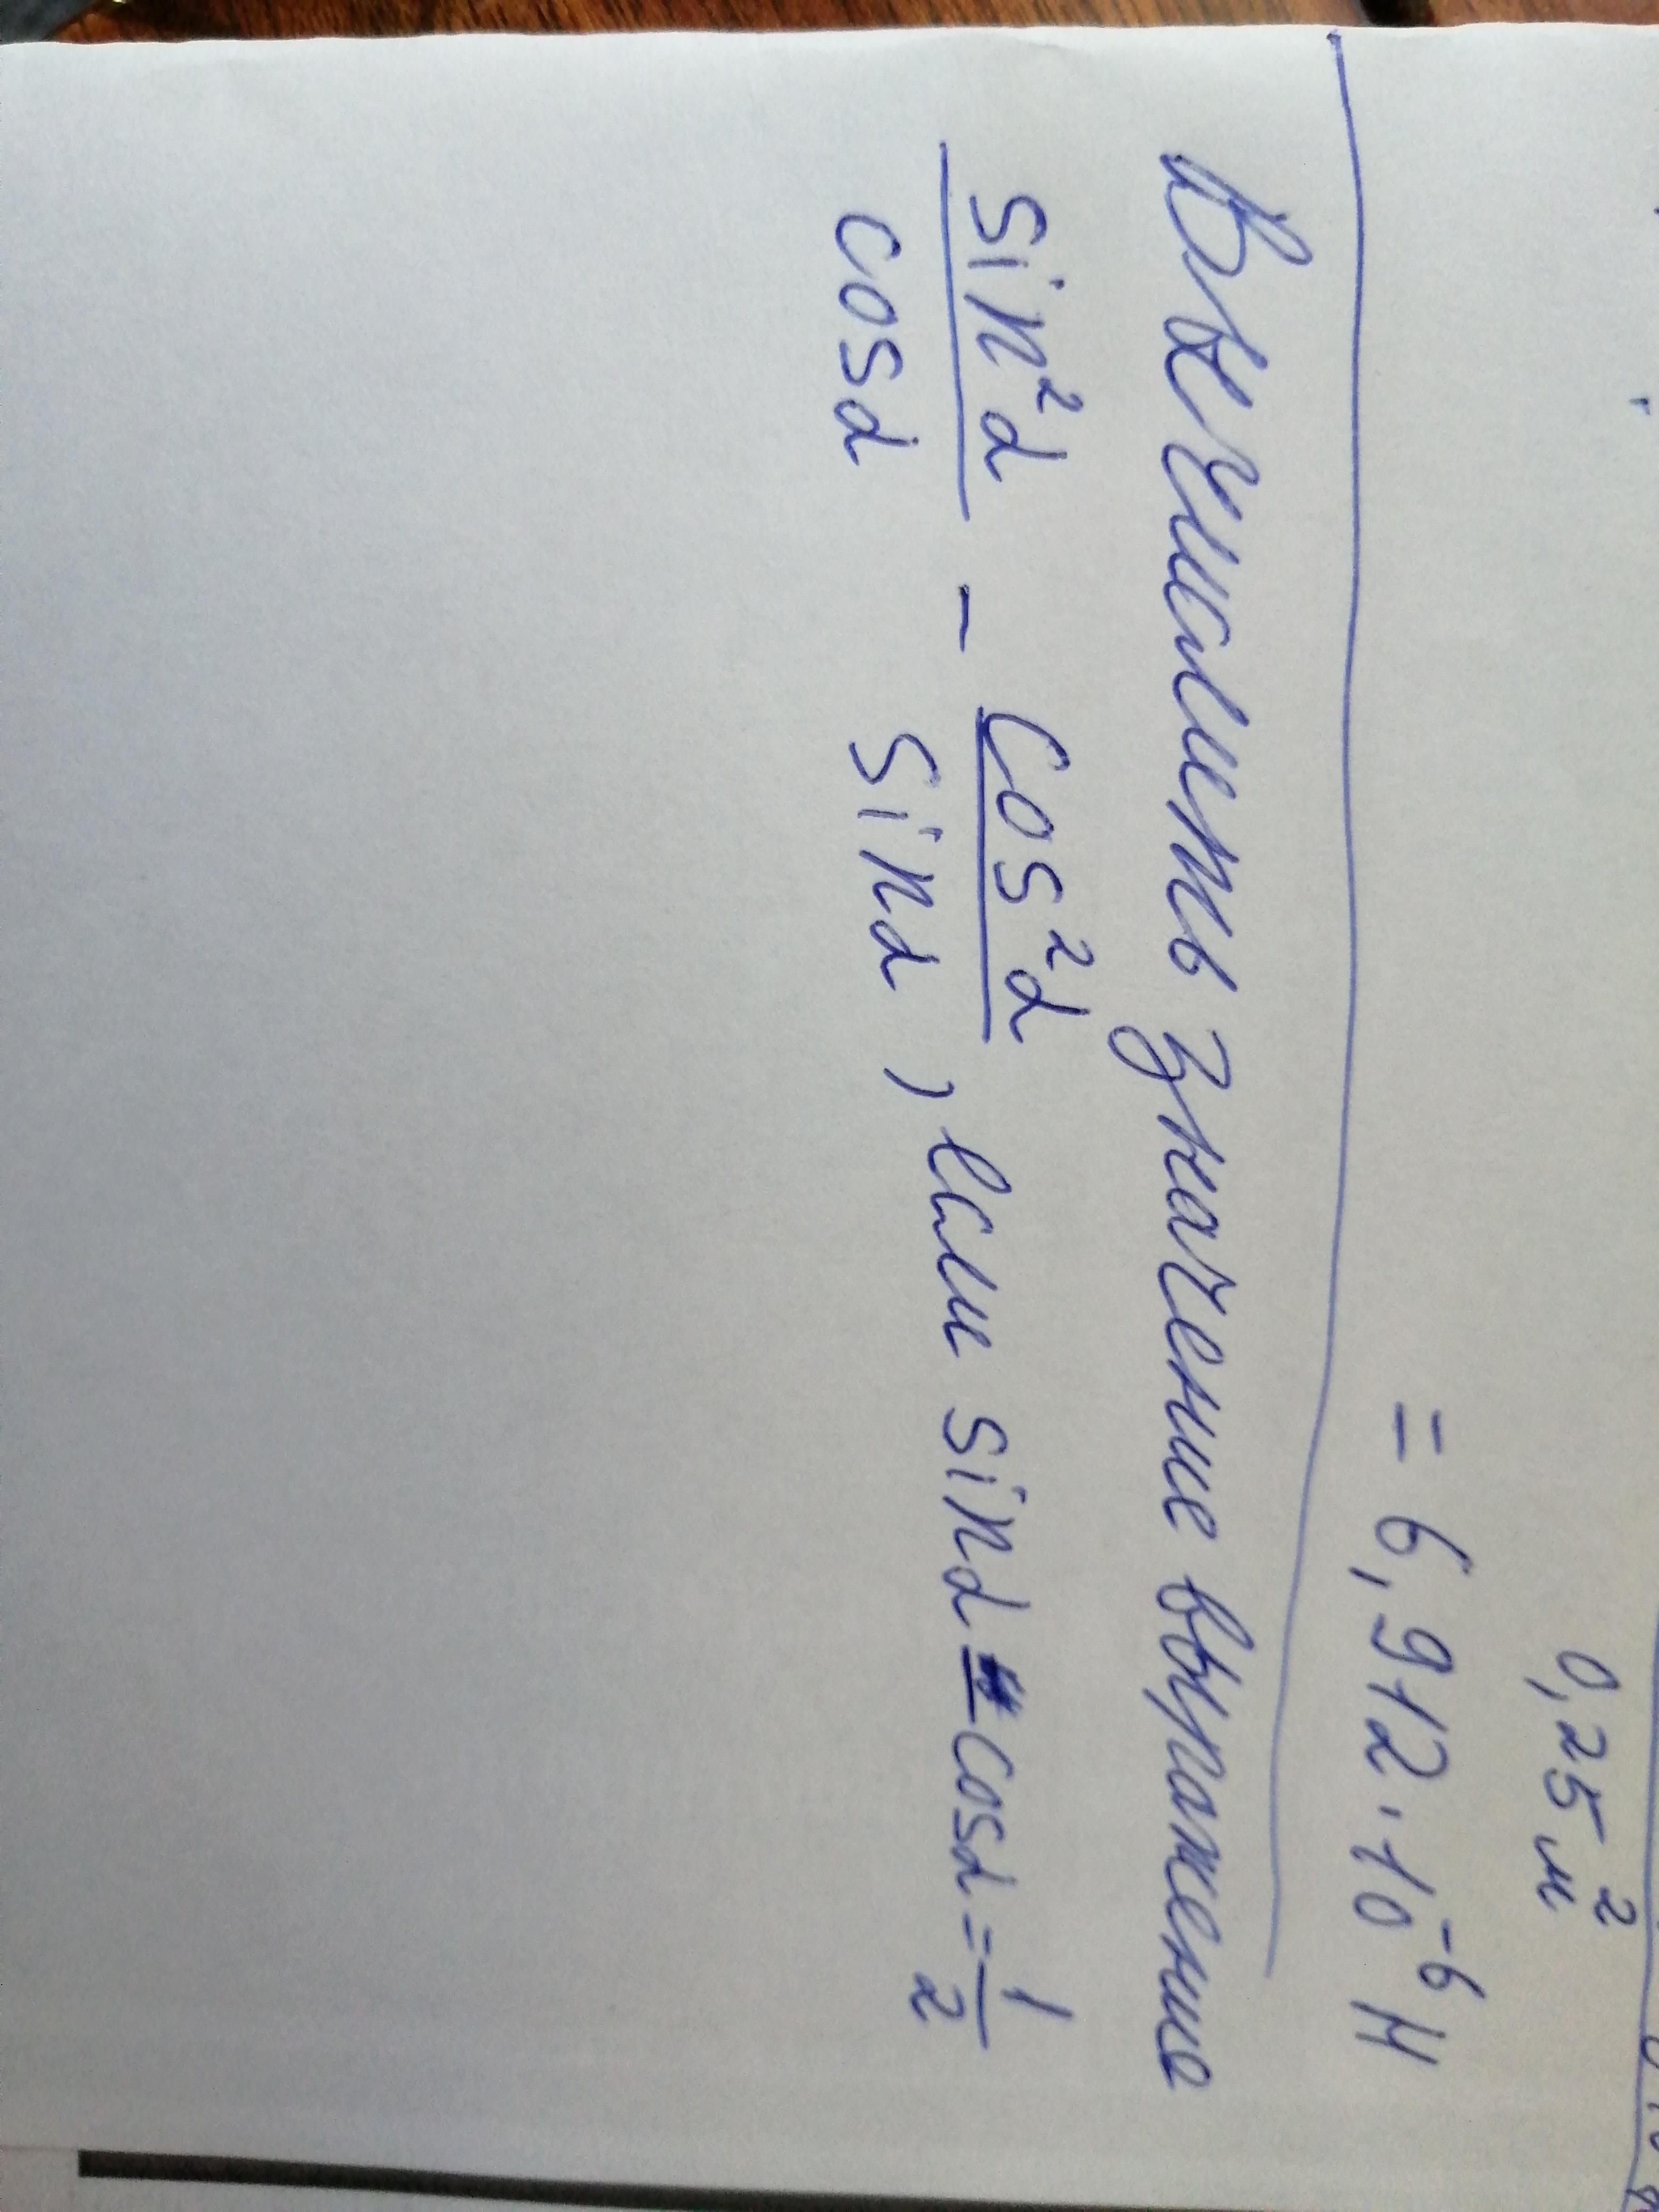 0,25 м²
= 6,912 · 10⁻⁶ Н
Вычислить значение выражение
sin²α/cosα − cos²α/sinα, если sinα − cosα = 1/2